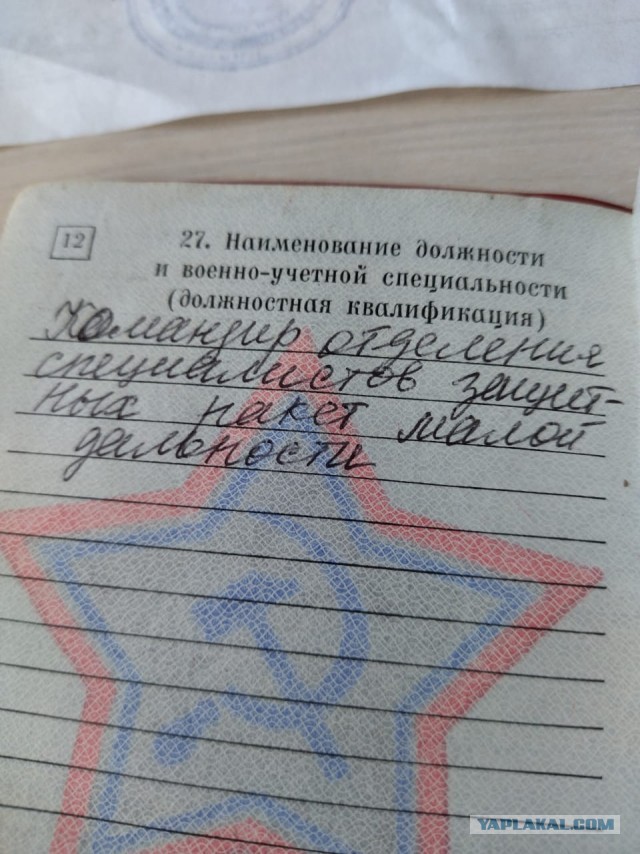 12
27. Наименование должности
и военно-учетной специальности
(должностная квалификация)
Командир отделения
специалистов защит-
ных ракет малой
дальности
YAPLAKAL.COM